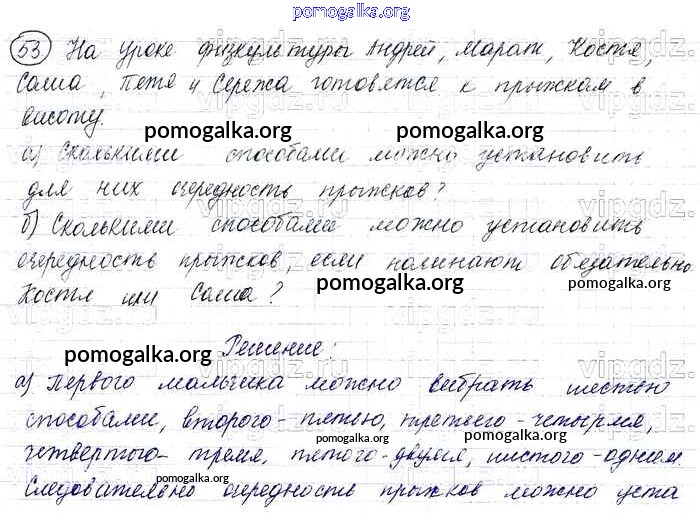 pomogalka.org
53. На уроке физкультуры Андрей, Марат, Костя,
Саша, Петя и Сережа готовятся к прыжкам в
высоту.
pomogalka.org pomogalka.org
а) Сколькими способами можно установить
для них очередность прыжков?
б) Сколькими способами можно установить
очередность прыжков, если начинают обязательно
pomogalka.org pomogalka.org
Костя или Саша?
Решение:
pomogalka.org
а) Первого мальчика можно выбрать шестью
способами, второго - пятью, третьего - четырмя,
pomogalka.org
четвертого - тремя, пятого - двумя, шистого - одним.
pomogalka.org
Следовательно очередность прыжков можно уста